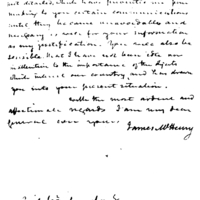 not dilated, which have prevented me from
making to you certain communications
until they became unavoidable and
necessary, as well for your information
as my justification. You will also be
sensible that I have not been idle nor
inattentive to the importance of the objects
which interest our country, and has drawn
you into your present situation.
With the most ardent and
affectionate regards I am my dear
General ever yours.
James McHenry